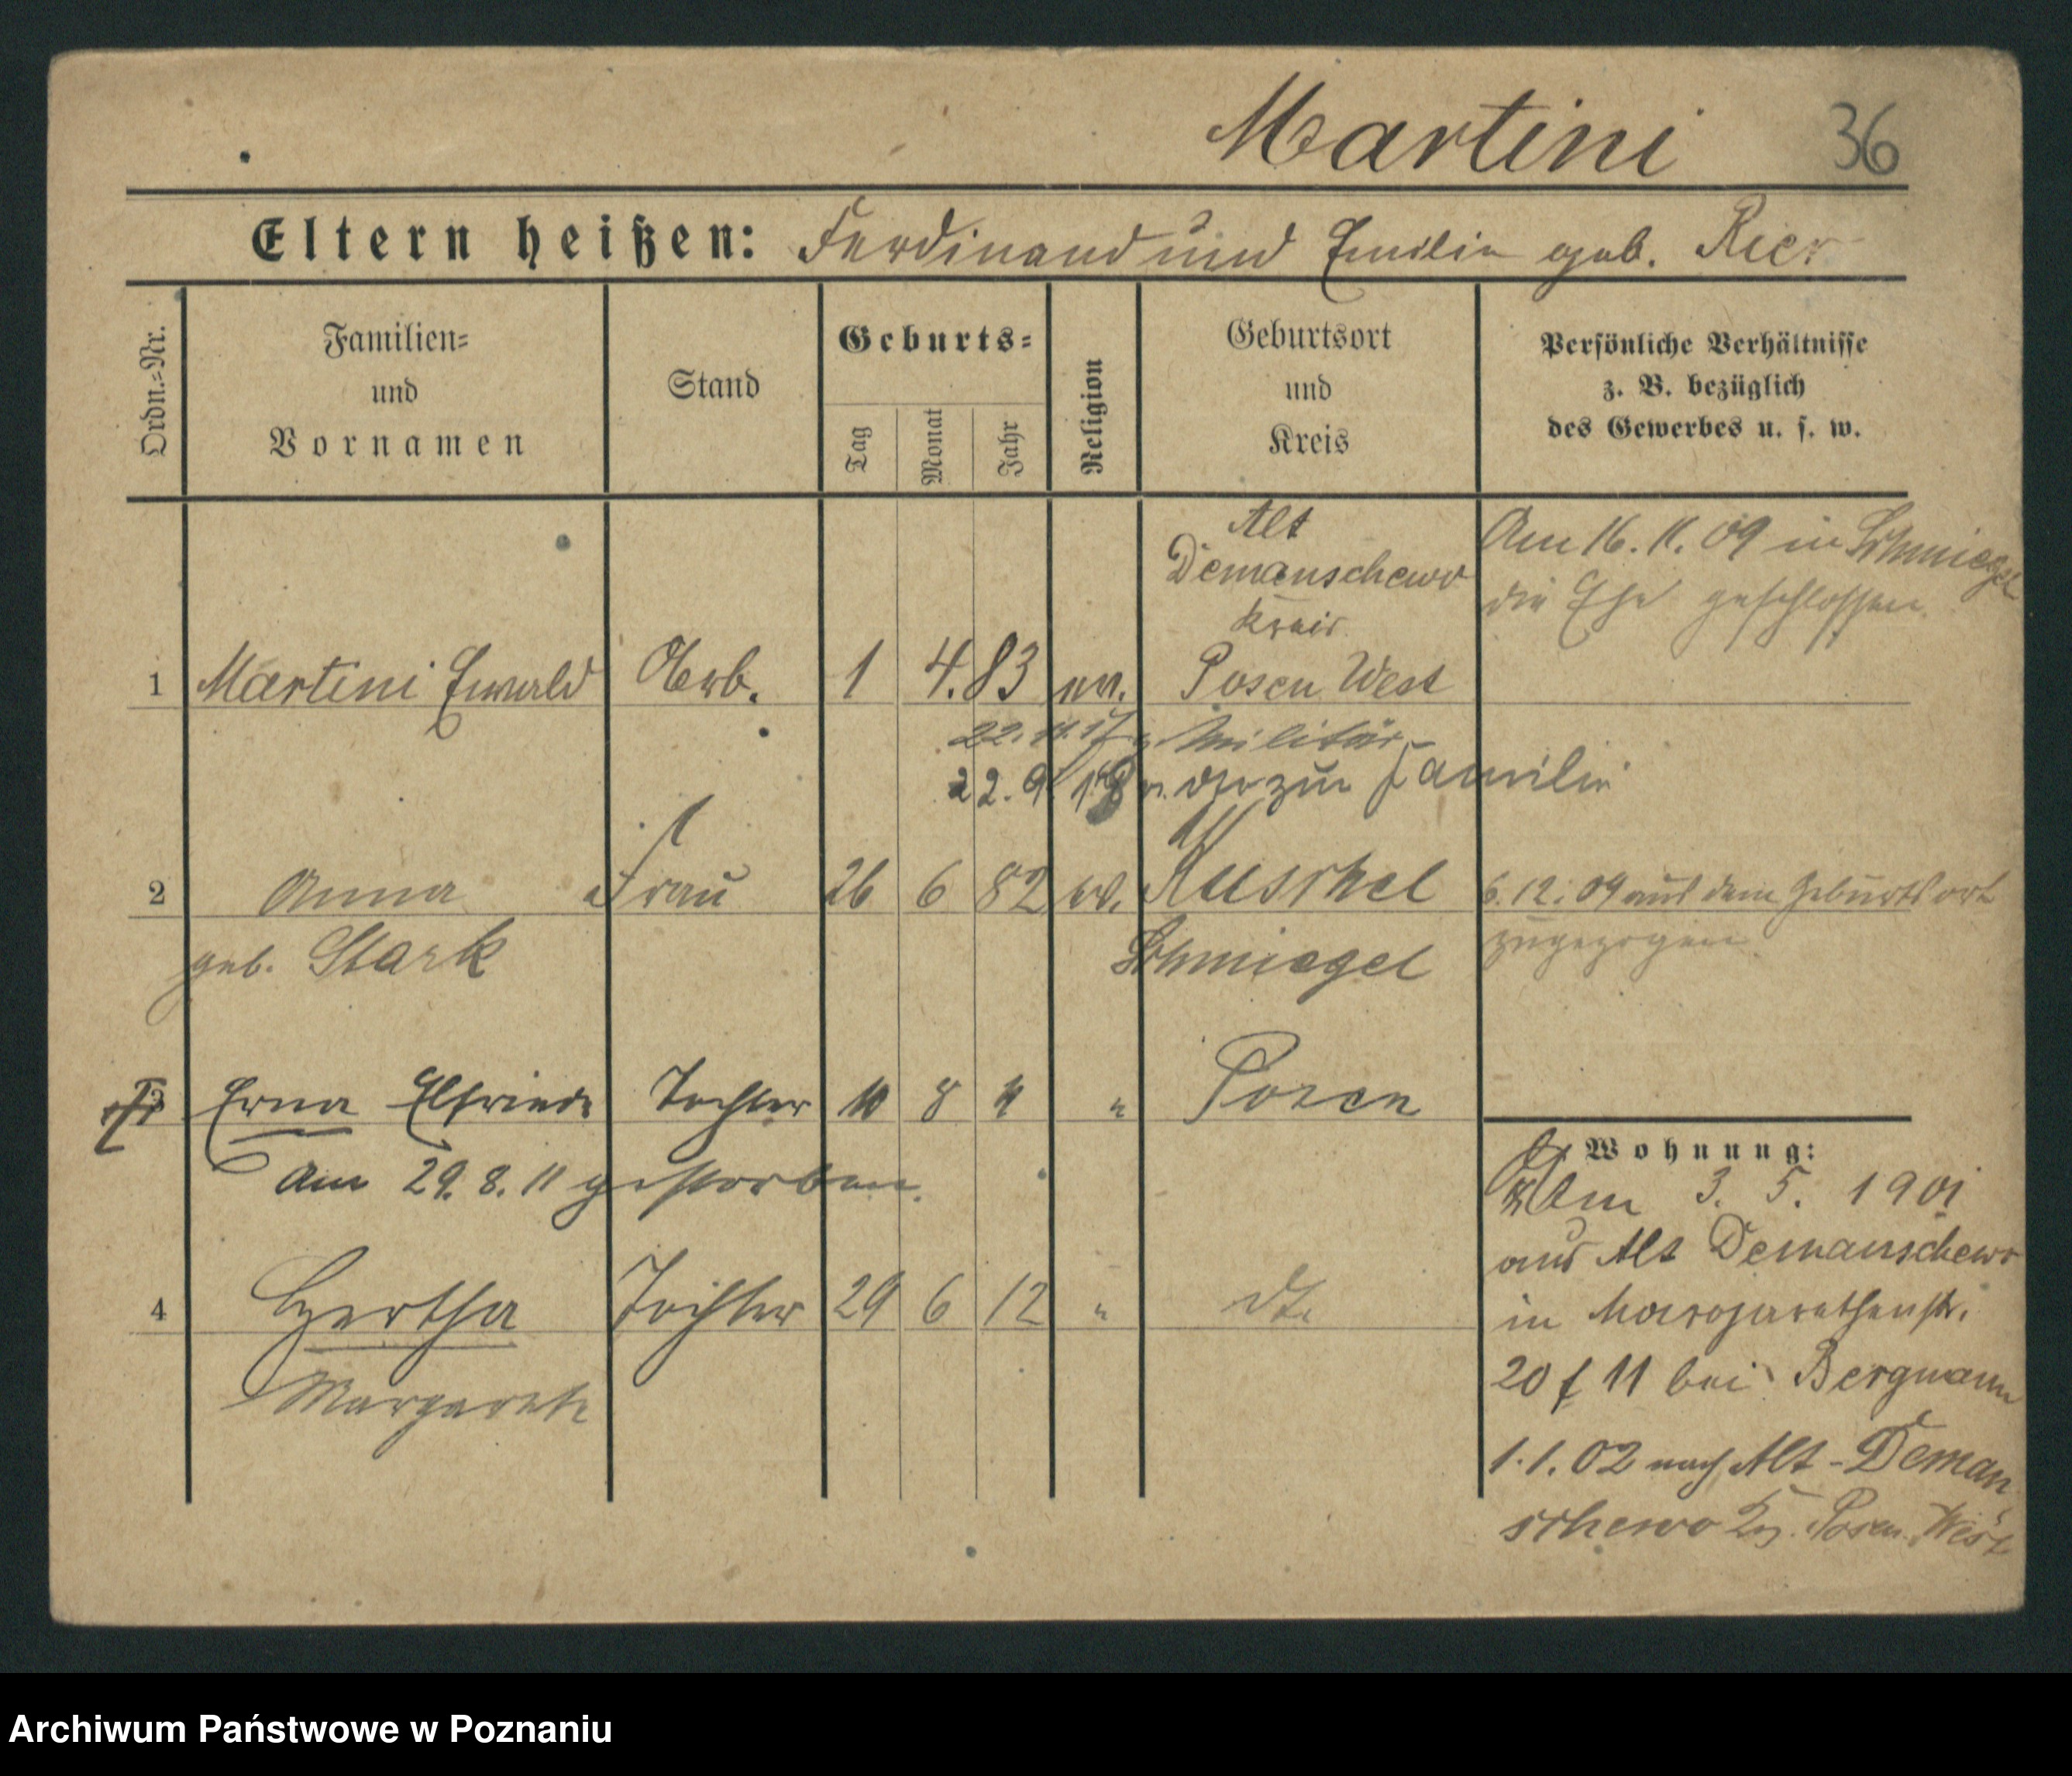 Martini 36
Eltern heißen: Ferdinand und Emilie geb. Rier
Ordn.=Nr.
Familien=
und
Vornamen
Stand
Geburts=
Tag
Monat
Jahr
Religion
Geburtsort
und
Kreis
Persönliche Verhältnisse
z. B. bezüglich
des Gewerbes u. s. w.
1 Martini Ewald Arb. 1 4. 83 ev.
Alt
Demanschewo
Kreis
Posen West
Am 16. 11. 09 in Schmiegel
die Ehe geschlossen.
22. 11. 17 z. Militär
22. 9. 18 v. do zur Familie
2 Anna Frau 26 6 82 ev. Kuschel
geb. Stark Schmiegel
6. 12. 09 aus dem Geburtsort
zugezogen
3 Erna Elfriede Tochter 10 8 11 " Posen
Am 29. 8. 11 gestorben.
4 Hertha Tochter 29 6 12 " dto
Margarete
Wohnung:
Am 3. 5. 1901
aus Alt Demanschewo
in Margarethenstr.
20 f 11 bei Bergmann
1. 1. 02 nach Alt-Deman
schewo Krs. Posen West
Archiwum Państwowe w Poznaniu